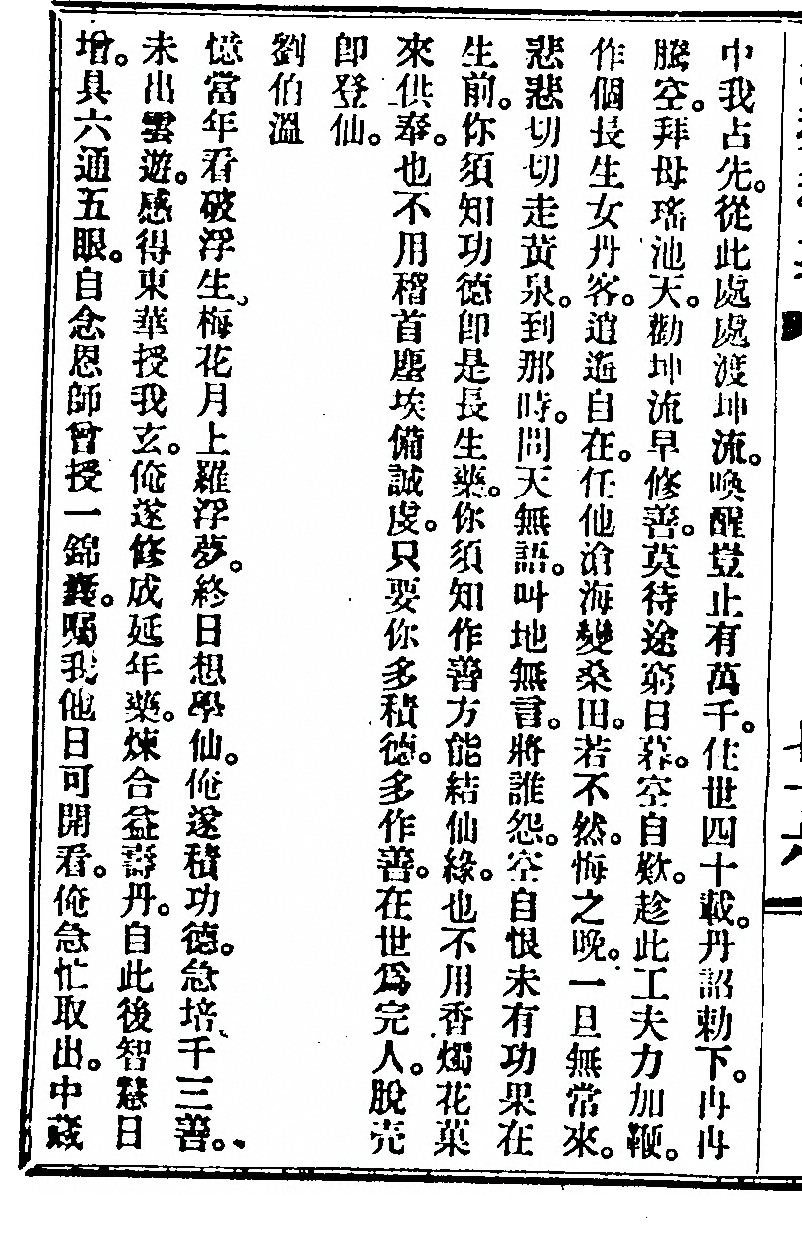 中我占先。從此處處渡坤流。喚醒豈止有萬千。住世四十載。丹詔勅下。冉冉
騰空。拜母瑤池天。勸坤流早修善。莫待途窮日暮。空自歎。趁此工夫力加鞭。
作個長生女丹客。逍遙自在。任他滄海變桑田。若不然。悔之晚。一旦無常來。
悲悲切切走黃泉。到那時。問天無語。叫地無言。將誰怨。空自恨未有功果在
生前。你須知功德卽是長生藥。你須知作善方能結仙緣。也不用香燭花菓
來供奉。也不用稽首塵埃備誠虔。只要你多積德。多作善。在世爲完人。脫壳
卽登仙。
劉伯溫
憶當年看破浮生、梅花月上羅浮夢。終日想學仙。俺遂積功德。急培、千三善。
未出雲遊。感得東華授我玄。俺遂修成延年藥。煉合益壽丹。自此後智慧日
增。具六通五眼。自念恩師曾授一錦囊。囑我他日可開看。俺急忙取出。中藏